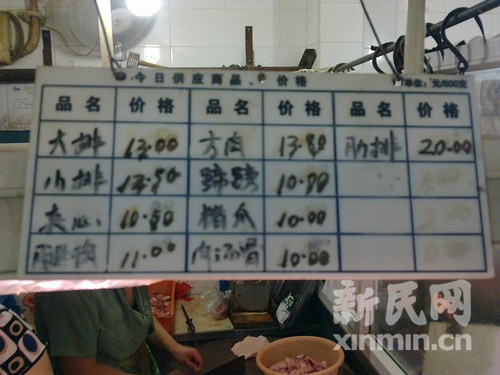 今日供应商品、价格 单位：元/500克
品名 价格 品名 价格 品名 价格
大排 13.00 方肉 13.80 肋排 20.00
小排 蹄髈
夹心 10.50 猪爪 10.00
腿肉 11.00 肉汤骨 10.00
新民网
xinmin.cn